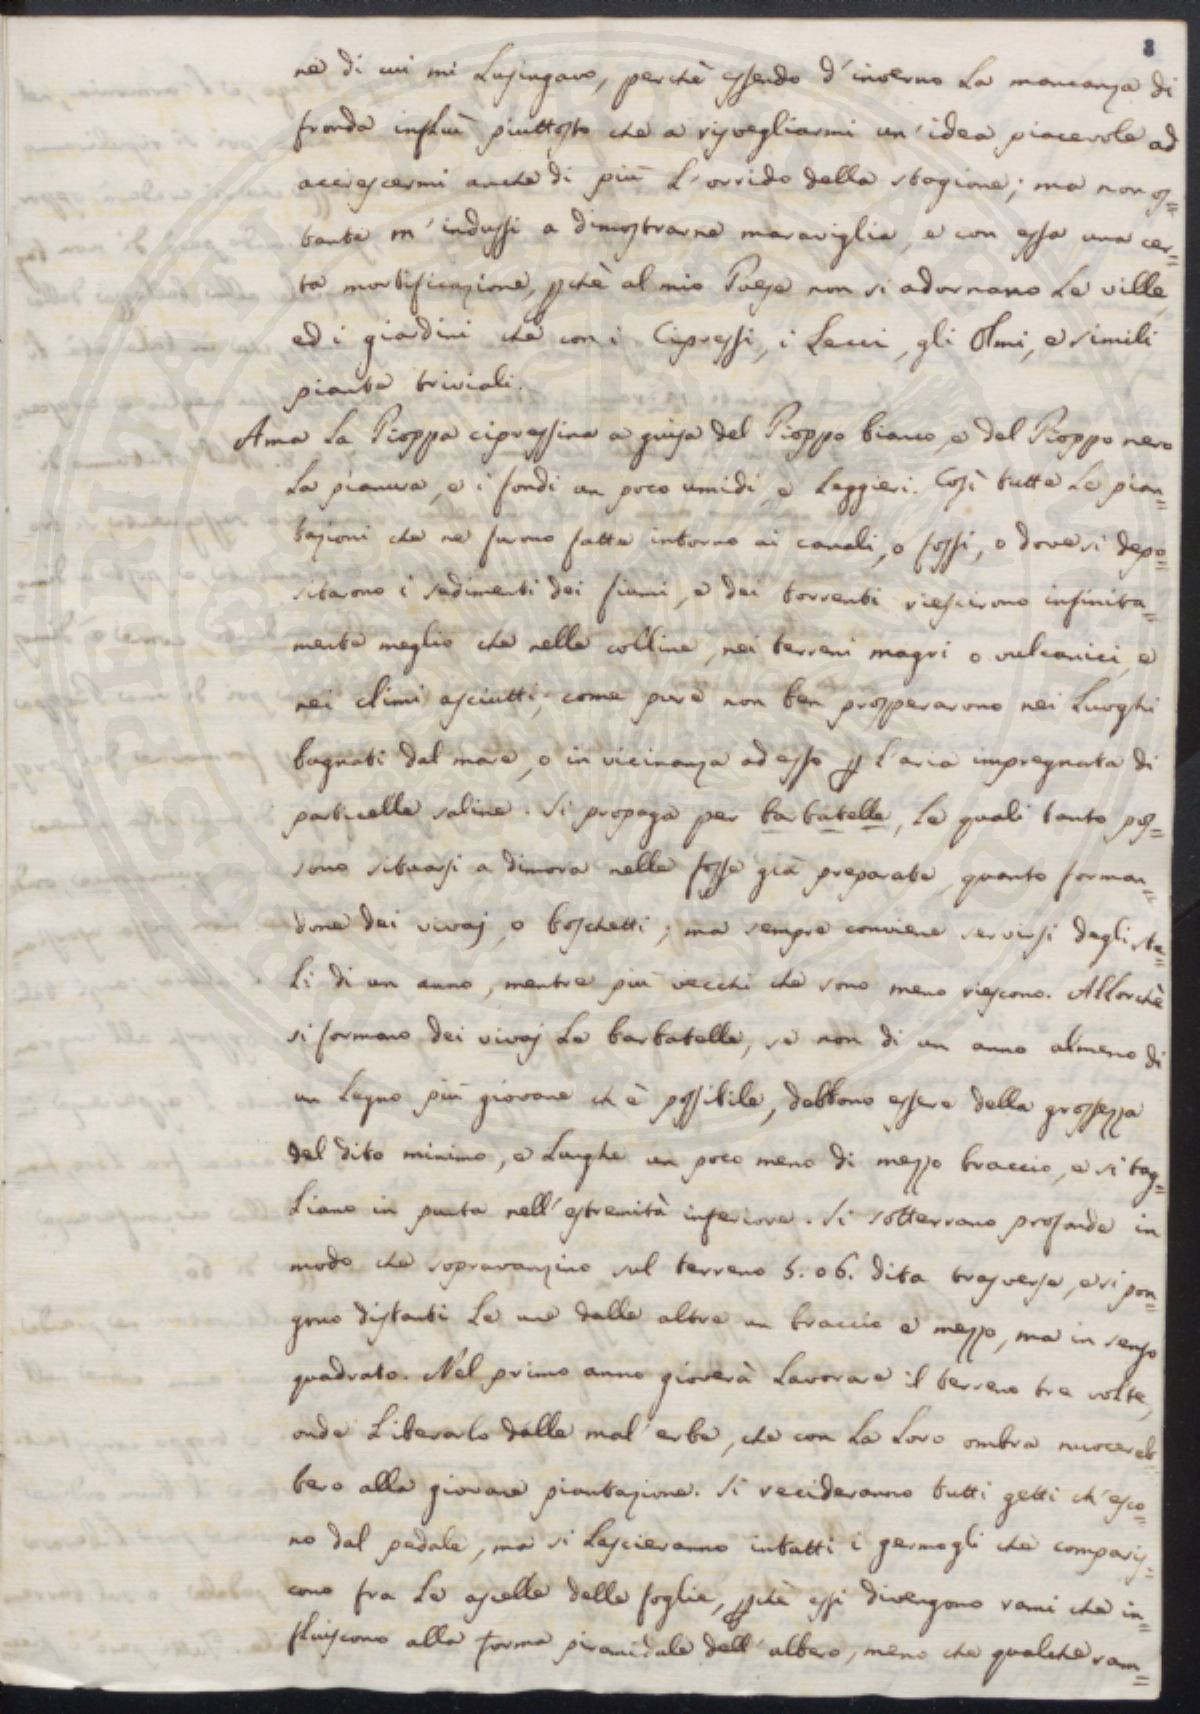 8
ne di cui mi Lusingavo, perchè essendo d'inverno La mancanza di
fronda influì piuttosto che a risvegliarmi un'idea piacevole ad
accrescermi anche di più L'orrido della stagione; ma non os=
tante m'indussi a dimostrarne maraviglia, e con essa una cer=
ta mortificazione, pchè al mio Paese non si adornano Le ville,
ed i giardini che con i Cipressi, i Lecci, gli Olmi, e simili
piante triviali.
Ama La Pioppa cipressina a guisa del Pioppo bianco, e del Pioppo nero
La pianura, e i fondi un poco umidi, e Leggieri. Così tutte Le pian=
tazioni che ne furono fatte intorno ai canali, o fossi, o dove si depo=
sitarono i sedimenti dei fiumi, e dei torrenti riescirono infinita=
mente meglio che nelle colline, nei terreni magri o vulcanici, e
nei climi asciutti; come pure non ben prosperarono nei Luoghi
bagnati dal mare, o in vicinanza ad esso p L'aria impregnata di
particelle saline. Si propaga per barbatelle, Le quali tanto pos=
sono situarsi a dimora nelle fosse già preparate, quanto forman=
done dei vivaj, o boschetti; ma sempre conviene servirsi degli ste=
Li di un anno, mentre più vecchi che sono meno riescono. Allorchè
si formano dei vivaj Le barbatelle, se non di un anno almeno di
un Legno più giovane ch'è possibile, debbono essere della grossezza
del dito minimo, e Lunghe un poco meno di mezzo braccio, e si tag=
Liano in punta nell'estremità inferiore. Si sotterrano profonde in
modo che sopravanzino sul terreno 5. o 6. dita trasverse, e si pon=
gono distanti Le une dalle altre un braccio e mezzo, ma in senso
quadrato. Nel primo anno gioverà Lavorare il terreno tre volte,
onde Liberarlo dalle mal'erbe, che con La Loro ombra nuocereb=
bero alla giovane piantazione. Si recideranno tutti getti ch'esco=
no dal pedale, ma si Lascieranno intatti i germogli che comparis=
cono fra Le ascelle delle foglie, pchè essi divengono rami che in=
fluiscono alla forma piramidale dell'albero, meno che qualche ram=